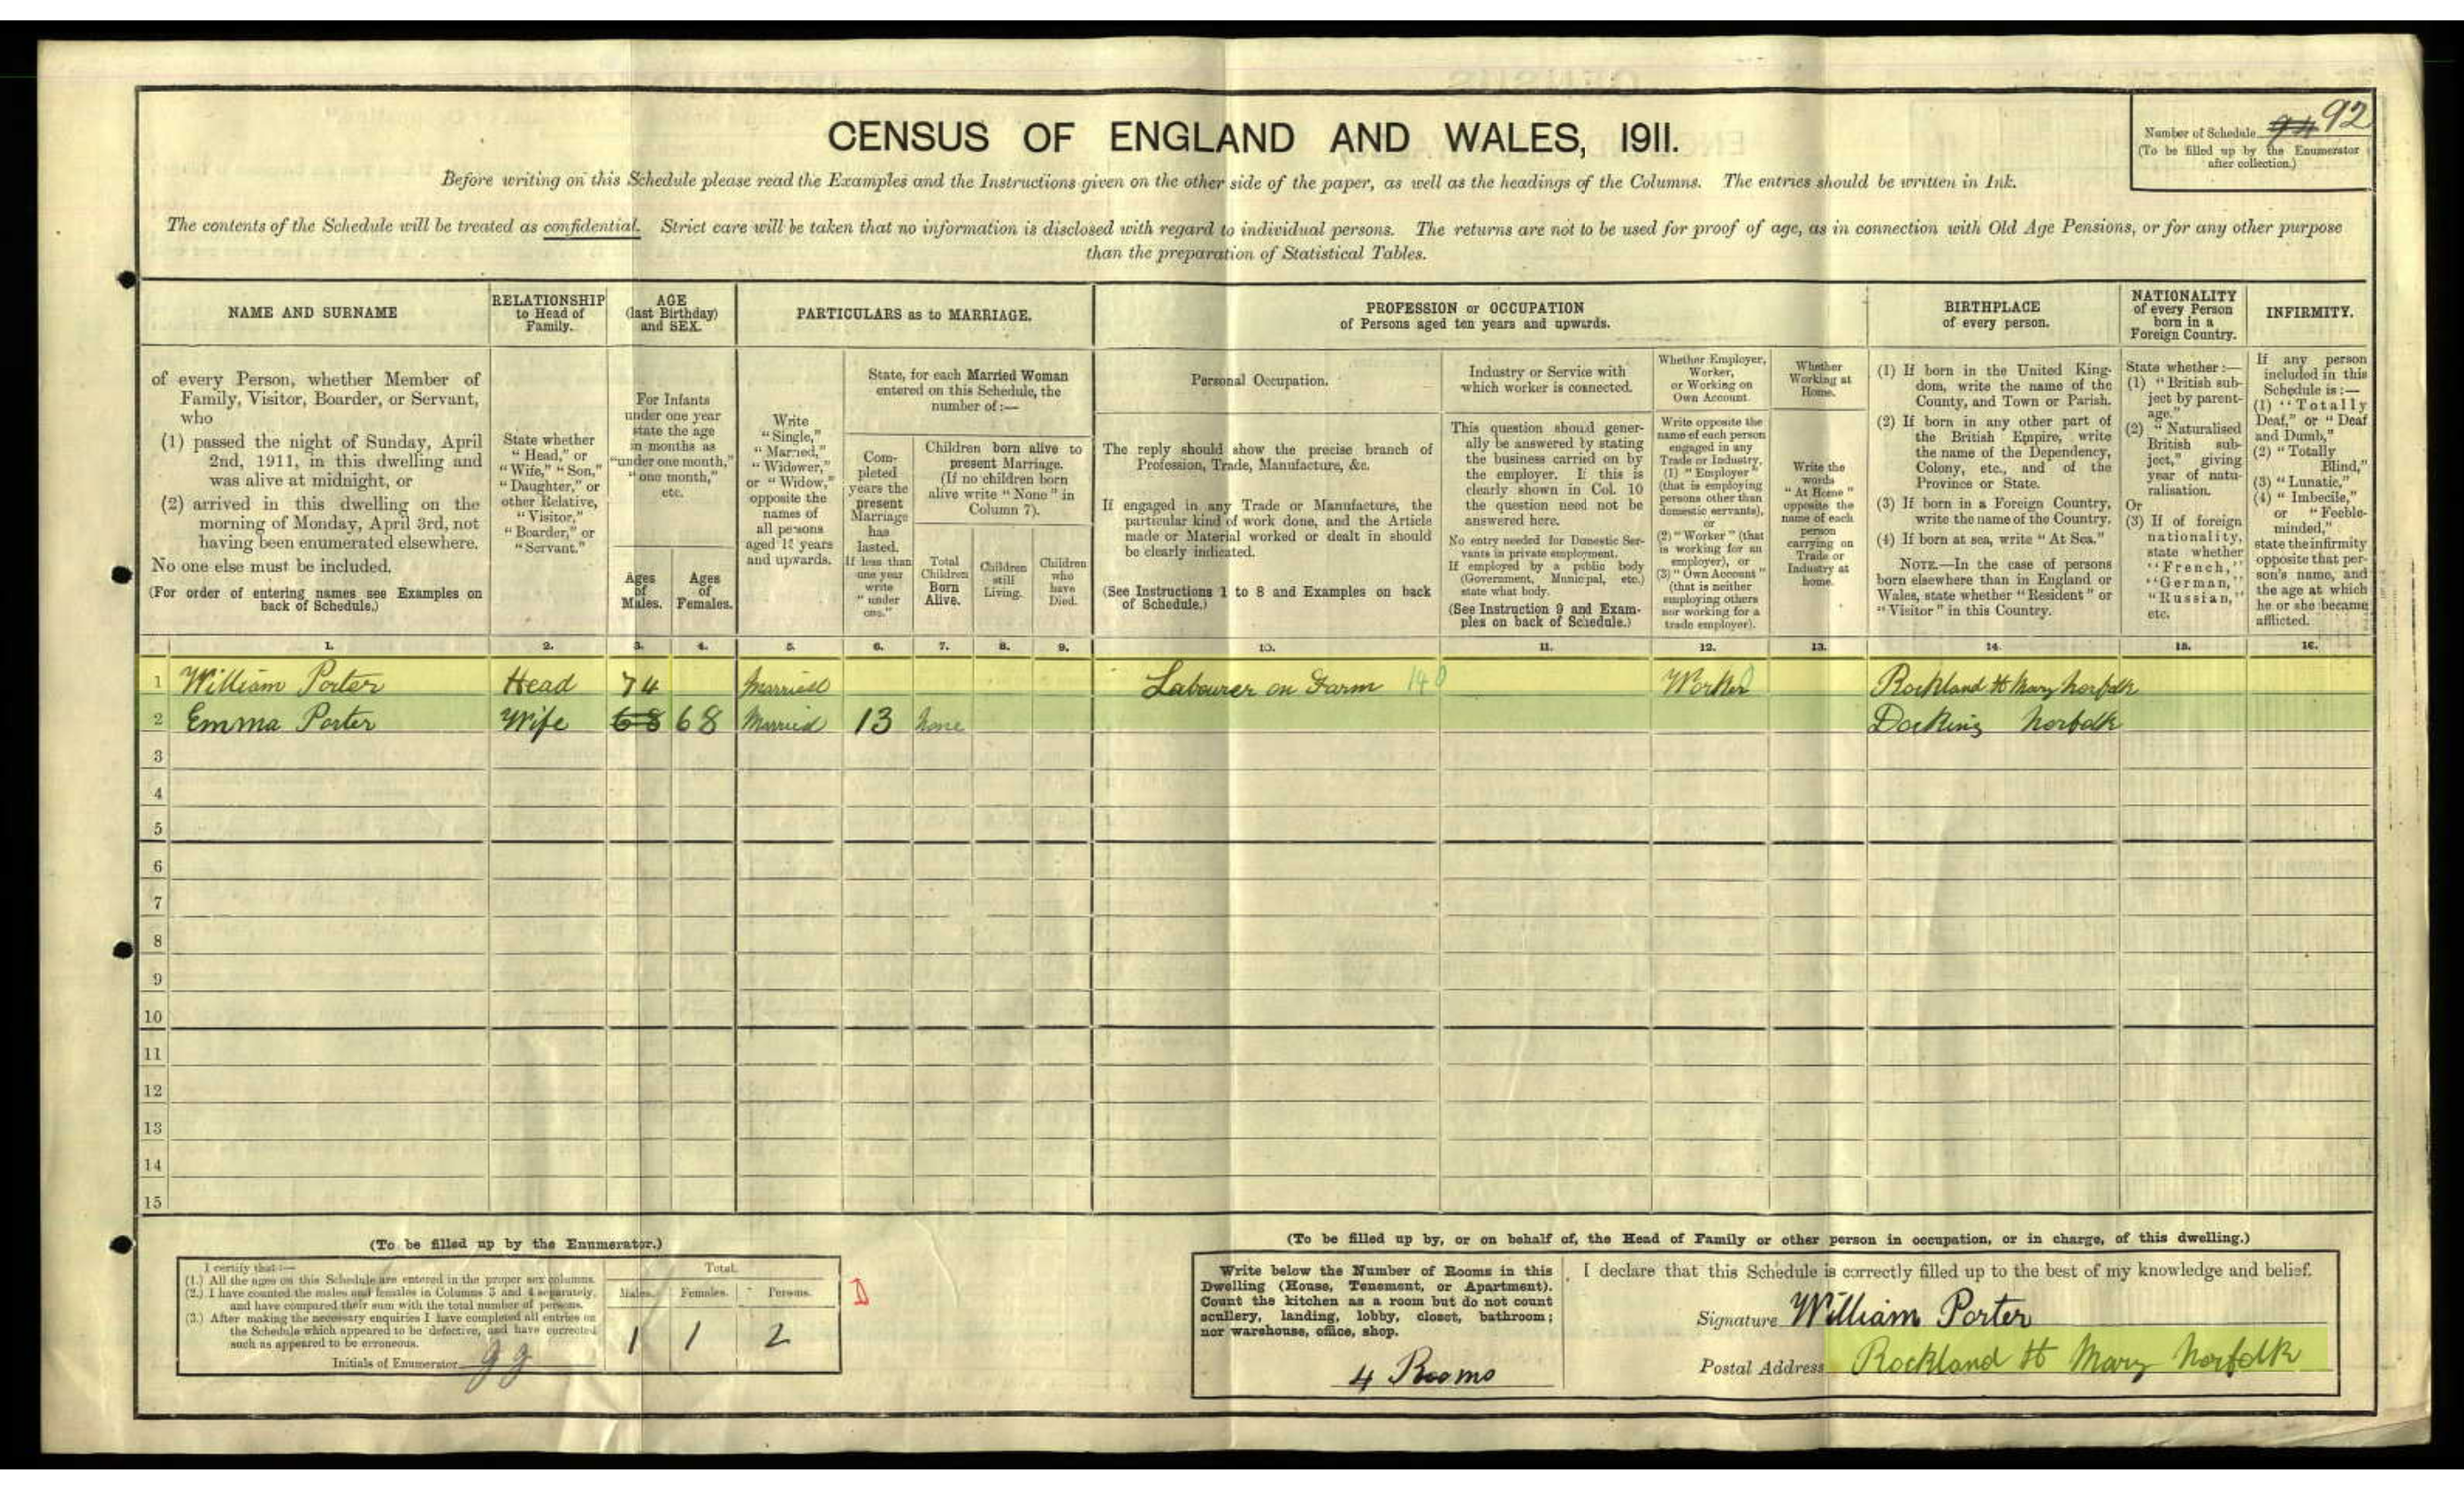 Number of Schedule 94 92
(To be filled up by the Enumerator
after collection.)
CENSUS OF ENGLAND AND WALES, 1911.
Before writing on this Schedule please read the Examples and the Instructions given on the other side of the paper, as well as the headings of the Columns. The entries should be written in Ink.
The contents of the Schedule will be treated as confidential. Strict care will be taken that no information is disclosed with regard to individual persons. The returns are not to be used for proof of age, as in connection with Old Age Pensions, or for any other purpose
than the preparation of Statistical Tables.
NAME AND SURNAME
of every Person, whether Member of
Family, Visitor, Boarder, or Servant,
who
(1) passed the night of Sunday, April
2nd, 1911, in this dwelling and
was alive at midnight, or
(2) arrived in this dwelling on the
morning of Monday, April 3rd, not
having been enumerated elsewhere.
No one else must be included.
(For order of entering names see Examples on
back of Schedule.)
RELATIONSHIP
to Head of
Family.
State whether
"Head," or
"Wife," "Son,"
"Daughter," or
other Relative,
"Visitor,"
"Boarder," or
"Servant."
AGE
(last Birthday)
and SEX.
For Infants
under one year
state the age
in months as
"under one month,"
"one month,"
etc.
Ages
of
Males.
Ages
of
Females.
PARTICULARS as to MARRIAGE.
Write
"Single,"
"Married,"
"Widower,"
or "Widow,"
opposite the
names of
all persons
aged 15 years
and upwards.
State, for each Married Woman
entered on this Schedule, the
number of:—
Com-
pleted
years the
present
Marriage
has
lasted.
If less than
one year
write
"under
one."
Children born alive to
present Marriage.
(If no children born
alive write "None" in
Column 7).
Total
Children
Born
Alive.
Children
still
Living.
Children
who
have
Died.
PROFESSION or OCCUPATION
of Persons aged ten years and upwards.
Personal Occupation.
The reply should show the precise branch of
Profession, Trade, Manufacture, &c.
If engaged in any Trade or Manufacture, the
particular kind of work done, and the Article
made or Material worked or dealt in should
be clearly indicated.
(See Instructions 1 to 8 and Examples on back
of Schedule.)
Industry or Service with
which worker is connected.
This question should gener-
ally be answered by stating
the business carried on by
the employer. If this is
clearly shown in Col. 10
the question need not be
answered here.
No entry needed for Domestic Ser-
vants in private employment.
If employed by a public body
(Government, Municipal, etc.)
state what body.
(See Instruction 9 and Exam-
ples on back of Schedule.)
Whether Employer,
Worker,
or Working on
Own Account.
Write opposite the
name of each person
engaged in any
Trade or Industry,
(1) "Employer"
(that is employing
persons other than
domestic servants),
or
(2) "Worker" (that
is working for an
employer), or
(3) "Own Account"
(that is neither
employing others
nor working for a
trade employer).
Whether
Working at
Home.
Write the
words
"At Home"
opposite the
name of each
person
carrying on
Trade or
Industry at
home.
BIRTHPLACE
of every person.
(1) If born in the United King-
dom, write the name of the
County, and Town or Parish.
(2) If born in any other part of
the British Empire, write
the name of the Dependency,
Colony, etc., and of the
Province or State.
(3) If born in a Foreign Country,
write the name of the Country.
(4) If born at sea, write "At Sea."
NOTE.—In the case of persons
born elsewhere than in England or
Wales, state whether "Resident" or
"Visitor" in this Country.
NATIONALITY
of every Person
born in a
Foreign Country.
State whether:—
(1) "British sub-
ject by parent-
age."
(2) "Naturalised
British sub-
ject," giving
year of natu-
ralisation.
Or
(3) If of foreign
nationality,
state whether
"French,"
"German,"
"Russian,"
etc.
INFIRMITY.
If any person
included in this
Schedule is:—
(1) "Totally
Deaf," or "Deaf
and Dumb,"
(2) "Totally
Blind,"
(3) "Lunatic,"
(4) "Imbecile,"
or "Feeble-
minded,"
state the infirmity
opposite that per-
son's name, and
the age at which
he or she became
afflicted.
1. 2. 3. 4. 5. 6. 7. 8. 9. 10. 11. 12. 13. 14. 15. 16.
1 William Porter Head 74 Married Labourer on Farm 140 Worker Rockland St Mary Norfolk
2 Emma Porter Wife 68 68 Married 13 None Docking Norfolk
3
4
5
6
7
8
9
10
11
12
13
14
15
(To be filled up by the Enumerator.)
I certify that:—
(1.) All the ages on this Schedule are entered in the proper sex columns.
(2.) I have counted the males and females in Columns 3 and 4 separately,
and have compared their sum with the total number of persons.
(3.) After making the necessary enquiries I have completed all entries on
the Schedule which appeared to be defective, and have corrected
such as appeared to be erroneous.
Initials of Enumerator
Total.
Males. Females. Persons.
1 1 2
D
(To be filled up by, or on behalf of, the Head of Family or other person in occupation, or in charge, of this dwelling.)
Write below the Number of Rooms in this
Dwelling (House, Tenement, or Apartment).
Count the kitchen as a room but do not count
scullery, landing, lobby, closet, bathroom;
nor warehouse, office, shop.
4 Rooms
I declare that this Schedule is correctly filled up to the best of my knowledge and belief.
Signature William Porter
Postal Address Rockland St Mary Norfolk